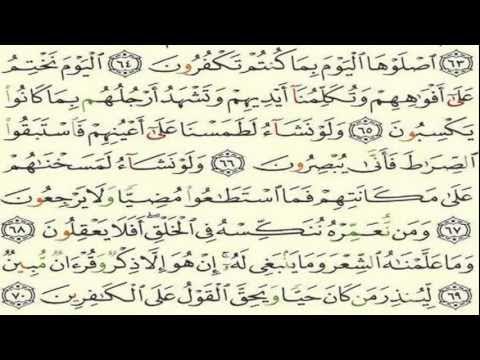 ٦٣ ٱصۡلَوۡهَا ٱلۡيَوۡمَ بِمَا كُنتُمۡ تَكۡفُرُونَ ٦٤ ٱلۡيَوۡمَ نَخۡتِمُ
عَلَىٰٓ أَفۡوَٰهِهِمۡ وَتُكَلِّمُنَآ أَيۡدِيهِمۡ وَتَشۡهَدُ أَرۡجُلُهُم بِمَا كَانُواْ
يَكۡسِبُونَ ٦٥ وَلَوۡ نَشَآءُ لَطَمَسۡنَا عَلَىٰٓ أَعۡيُنِهِمۡ فَٱسۡتَبَقُواْ
ٱلصِّرَٰطَ فَأَنَّىٰ يُبۡصِرُونَ ٦٦ وَلَوۡ نَشَآءُ لَمَسَخۡنَٰهُمۡ
عَلَىٰ مَكَانَتِهِمۡ فَمَا ٱسۡتَطَٰعُواْ مُضِيّٗا وَلَا يَرۡجِعُونَ
٦٧ وَمَن نُّعَمِّرۡهُ نُنَكِّسۡهُ فِي ٱلۡخَلۡقِۚ أَفَلَا يَعۡقِلُونَ ٦٨
وَمَا عَلَّمۡنَٰهُ ٱلشِّعۡرَ وَمَا يَنۢبَغِي لَهُۥٓۚ إِنۡ هُوَ إِلَّا ذِكۡرٞ وَقُرۡءَانٞ مُّبِينٞ
٦٩ لِّيُنذِرَ مَن كَانَ حَيّٗا وَيَحِقَّ ٱلۡقَوۡلُ عَلَى ٱلۡكَٰفِرِينَ ٧٠